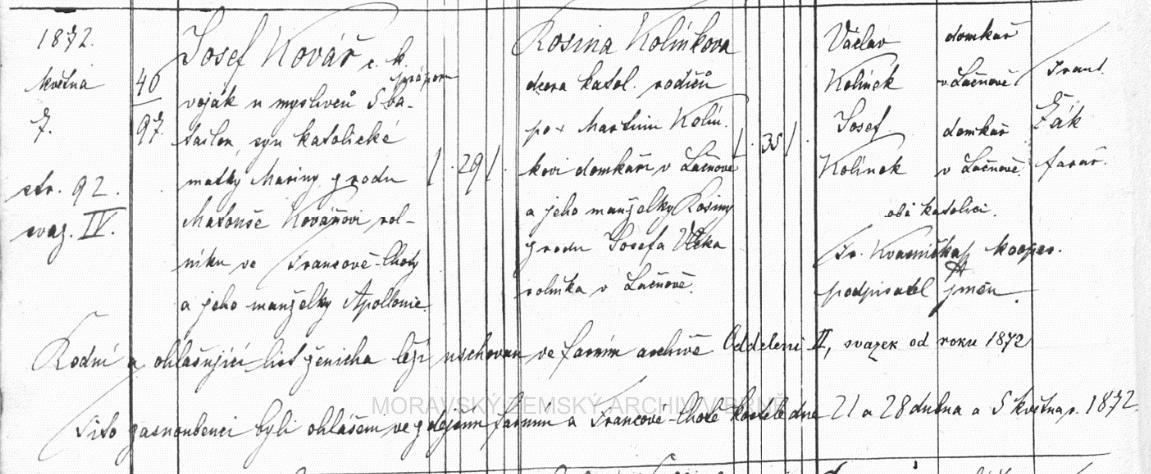 1872.
května
7.
str. 92.
svaz. IV.
40
97
Josef Kovář c. k.
vojín u myslivců 5 ba-
tailon, syn katolické
matky Mariny z rodu
Matouše Kovářovi rol-
níku ve Francově-Lhotě
a jeho manželky Apollonie.
29
Rosina Kolínkova
dcera katol. rodičů
po + Martinu Kolín-
kovi domkáři v Lačnově
a jeho manželky Rosiny
z rodu Josefa Vlčka
rolníka v Lačnově.
35
Václav domkář
Kolínek v Lačnově
Josef domkář
Kolínek v Lačnově
oba katolíci.
Fr. Kvasnička kooper.
podpisatel jmén.
Frant.
Žák
farář.
Rodní a ohlašující list ženicha leží uschován ve farním archivě Oddělení II, svazek od roku 1872
MORAVSKÝ ZEMSKÝ ARCHIV V BRNĚ
Tito zasnoubenci byli ohlášeni ve zdejším farním a Francově-Lhotě kostele dne 21 a 28 dubna a 5 května r. 1872.